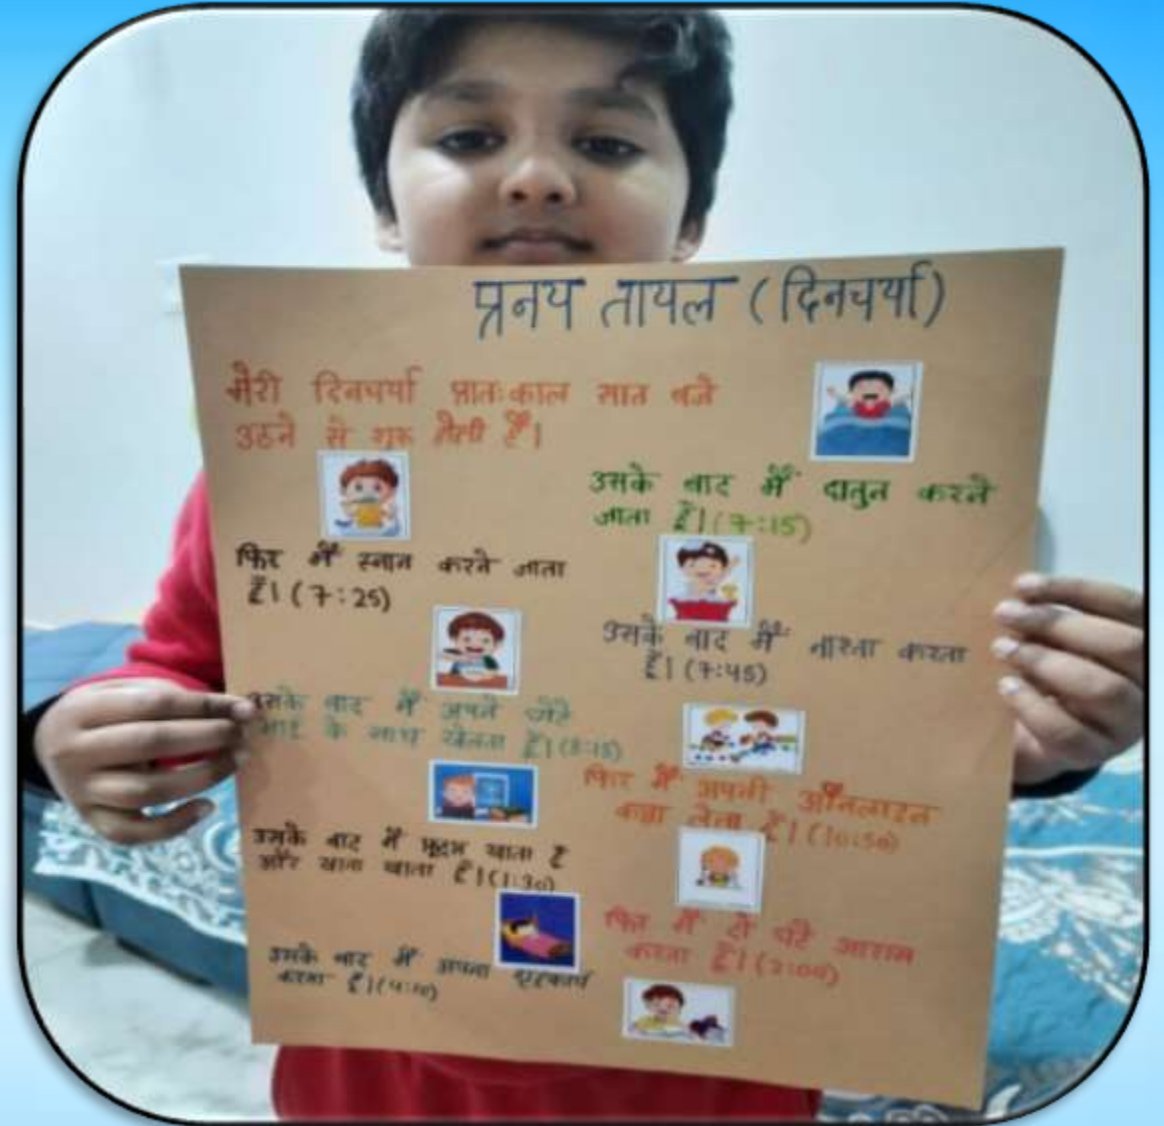 प्रनय तायल (दिनचर्या)
मेरी दिनचर्या प्रातःकाल सात बजे
उठने से शुरू होती है।
उसके बाद मैं दातुन करने
जाता हूँ। (7:15)
फिर मैं स्नान करने जाता
हूँ। (7:25)
उसके बाद मैं नाश्ता करता
हूँ। (7:45)
उसके बाद मैं अपने छोटे
भाई के साथ खेलता हूँ। (8:15)
फिर मैं अपनी ऑनलाइन
कक्षा लेता हूँ। (10:50)
उसके बाद मैं खाता हूँ
और खाना खाता हूँ। (1:30)
फिर मैं दो घंटे आराम
करता हूँ। (2:00)
उसके बाद मैं अपना गृहकार्य
करता हूँ। (4:10)